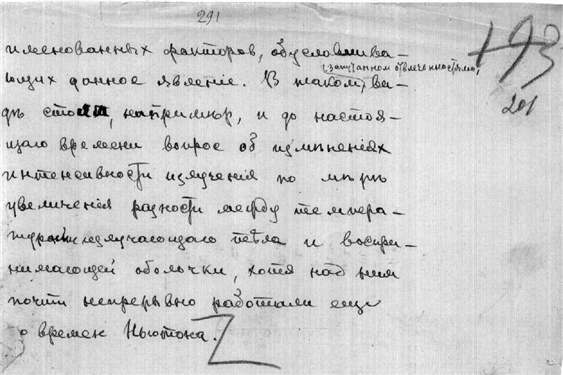 291
193
201
именованных факторов, обуславлива-
(запутанном отвлеченностями,)
ющих данное явленіе. В таком ви-
дѣ стоял, напримѣр, и до настоя-
щаго времени вопрос об измѣненіях
интенсивности излученія по мѣрѣ
увеличенія разности между темпера-
турами излучающаго тѣла и воспри-
нимающей оболочки, хотя над ним
почти непрерывно работали еще
со времен Ньютона.